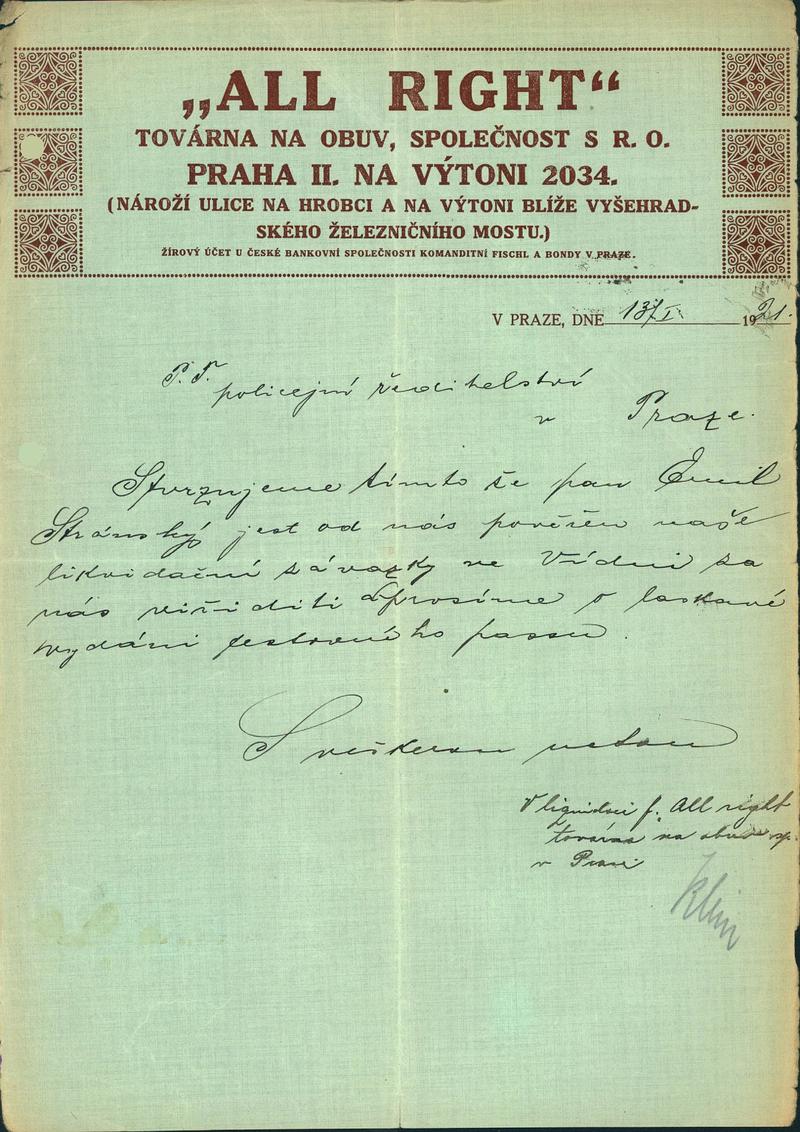 „ALL RIGHT“
TOVÁRNA NA OBUV, SPOLEČNOST S R. O.
PRAHA II. NA VÝTONI 2034.
(NÁROŽÍ ULICE NA HROBCI A NA VÝTONI BLÍŽE VYŠEHRAD-
SKÉHO ŽELEZNIČNÍHO MOSTU.)
ŽÍROVÝ ÚČET U ČESKÉ BANKOVNÍ SPOLEČNOSTI KOMANDITNÍ FISCHL A BONDY V PRAZE.
V PRAZE, DNE 13/I. 1921.
P. T.
policejní ředitelství
v Praze.
Stvrzujeme tímto že pan Emil
Stránský jest od nás pověřen naše
likvidační závazky ve Vídni za
nás viřiditi a prosíme o laskavé
vydání cestovného passu.
S veškerou uctou
V liquidaci f. All right
továrna na obuv sp.
v Praze